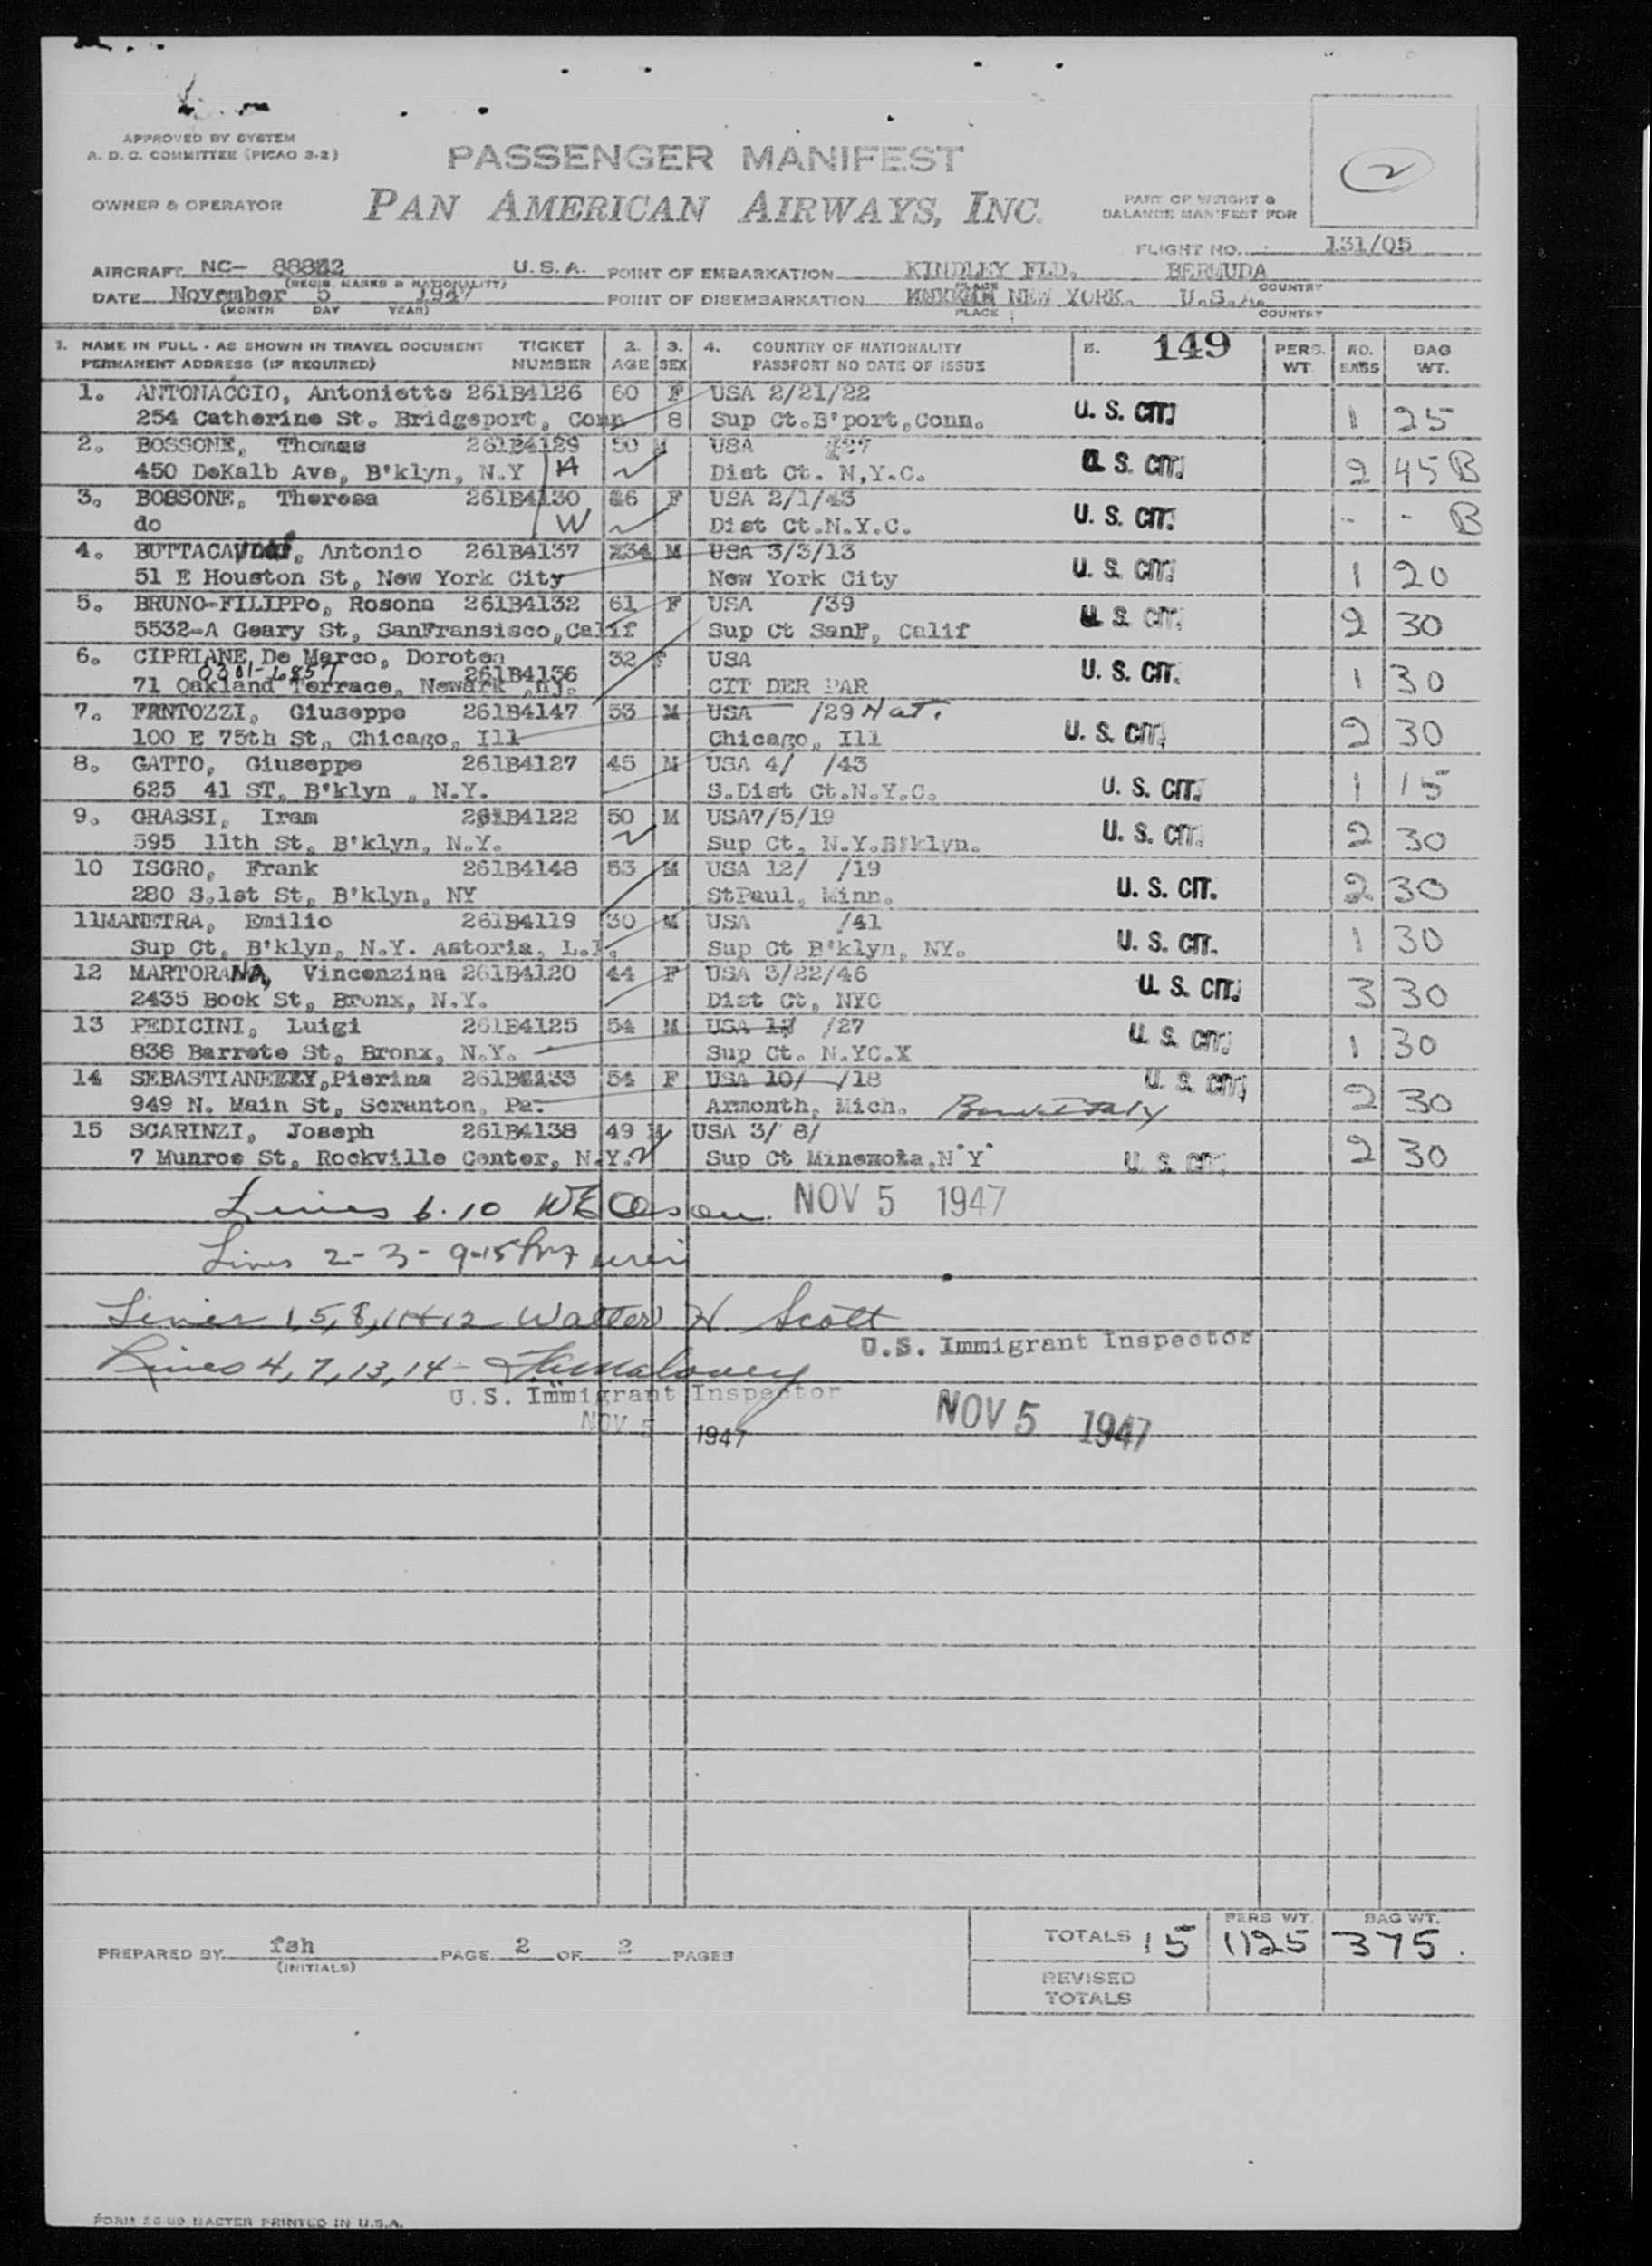 APPROVED BY SYSTEM
A. D. C. COMMITTEE (PICAO 3-2)
PASSENGER MANIFEST
2
OWNER & OPERATOR
PAN AMERICAN AIRWAYS, INC.
PART OF WEIGHT &
BALANCE MANIFEST FOR
FLIGHT NO. 131/05
AIRCRAFT NC- U.S.A. POINT OF EMBARKATION KINDLEY FLD, BERMUDA
(REGIS. MARKS & NATIONALITY) PLACE COUNTRY
DATE November 5 1947 POINT OF DISEMBARKATION NEW YORK. U.S.A.
(MONTH DAY YEAR) PLACE COUNTRY
1. NAME IN FULL - AS SHOWN IN TRAVEL DOCUMENT TICKET 2. 3. 4. COUNTRY OF NATIONALITY 5. 149 PERS. NO. BAG
PERMANENT ADDRESS (IF REQUIRED) NUMBER AGE SEX PASSPORT NO DATE OF ISSUE WT. BAGS WT.
1. ANTONACCIO, Antoniette 261B4126 60 F USA 2/21/22
254 Catherine St. Bridgeport, Conn 8 Sup Ct.B'port,Conn. U. S. CIT. 1 25
2. BOSSONE, Thomas 261B4129 50 M USA
450 DeKalb Ave, B'klyn, N.Y H Dist Ct. N,Y.C. U. S. CIT. 2 45 B
3. BOSSONE, Theresa 261B4130 F USA 2/1/43
do W Dist Ct.N.Y.C. U. S. CIT. - - B
4. Antonio 261B4137 34 M USA 3/3/13
51 E Houston St, New York City New York City U. S. CIT. 1 20
5. BRUNO-FILIPPO, Rosona 261B4132 61 F USA /39
5532-A Geary St, SanFransisco,Calif Sup Ct SanF, Calif U. S. CIT. 2 30
6. CIPRIANE De Marco, Doroten 32 F USA
261B4136
71 Oakland Terrace, Newark ,nj. CIT DER PAR U. S. CIT. 1 30
7. FRNTOZZI, Giuseppe 261B4147 53 M USA /29 Nat.
100 E 75th St, Chicago, Ill Chicago, Ill U. S. CIT. 2 30
8. GATTO, Giuseppe 261B4127 45 M USA 4/ /43
625 41 ST, B'klyn , N.Y. S.Dist Ct.N.Y.C. U. S. CIT. 1 15
9. GRASSI, Iram 261B4122 50 M USA7/5/19
595 11th St, B'klyn, N.Y. Sup Ct, N.Y.B'klyn. U. S. CIT. 2 30
10 ISGRO, Frank 261B4148 53 M USA 12/ /19
280 S.1st St, B'klyn, NY StPaul, Minn. U. S. CIT. 2 30
11MANETRA, Emilio 261B4119 30 M USA /41
Sup Ct, B'klyn, N.Y. Astoria, L.I. Sup Ct B'klyn, NY. U. S. CIT. 1 30
12 MARTORANA, Vincenzina 261B4120 44 F USA 3/22/46
2435 Book St, Bronx, N.Y. Dist Ct, NYC U. S. CIT. 3 30
13 PEDICINI, Luigi 261B4125 54 M USA /27
838 Barrete St, Bronx, N.Y. Sup Ct. N.YC.X U. S. CIT. 1 30
14 Pierina 54 F USA 10/ /18
949 N. Main St, Scranton, Pa. Armonth, Mich. U. S. CIT. 2 30
15 SCARINZI, Joseph 261B4138 49 M USA 3/ 8/
7 Munroe St, Rockville Center, N.Y. Sup Ct N Y U. S. CIT. 2 30
Lines 6.10 NOV 5 1947
Lines 2-3-9-15
Lines 1,5,8,11+12 Walter H. Scott
U.S. Immigrant Inspector
Lines 4,7,13,14-
U.S. Immigrant Inspector
NOV 5 1947 NOV 5 1947
TOTALS 15 PERS WT. 1125 BAG WT. 375.
PREPARED BY fsh PAGE 2 OF 2 PAGES
(INITIALS)
REVISED
TOTALS
MASTER PRINTED IN U.S.A.